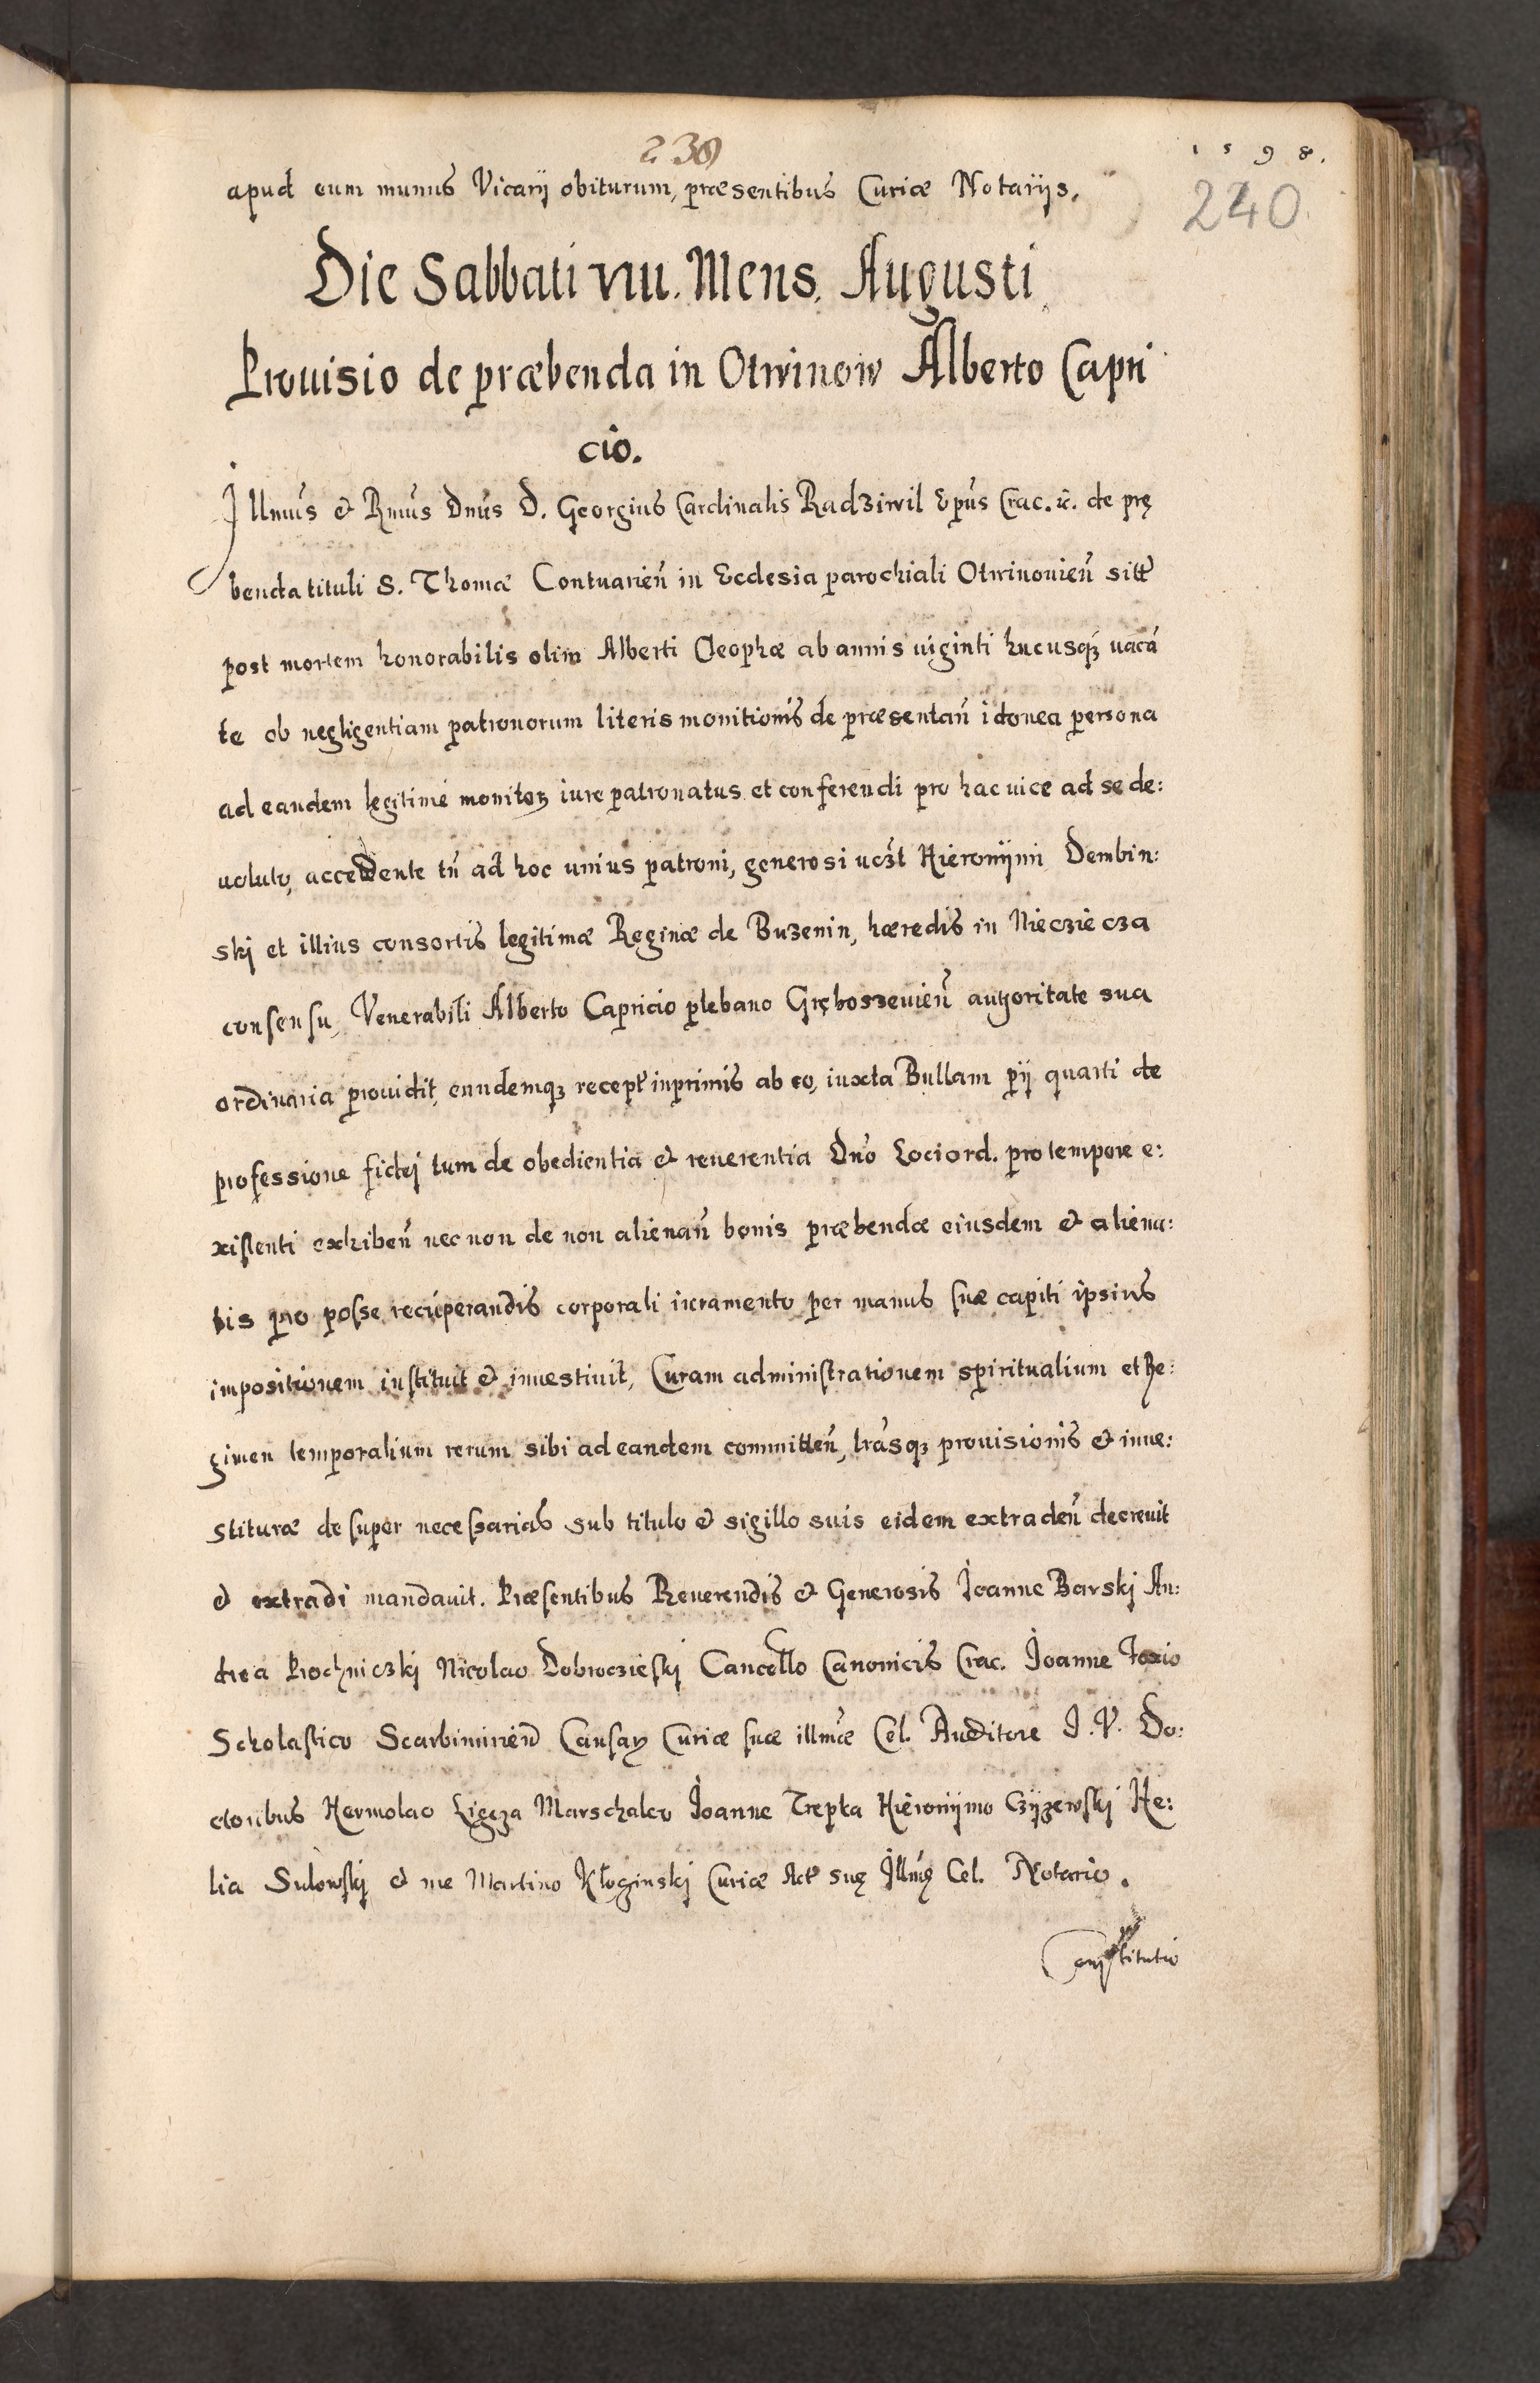 239
1598.
240.
apud eum munus Vicarij obiturum, præsentibus Curiæ Notarijs.
Die Sabbati VIII. Mens. Augusti
Prouisio de præbenda in Otwinow Alberto Capri
cio.
Illmus & Rmus Dnus D. Georgius Cardinalis Radziwil Epus Crac. &. de prę
benda tituli S. Thomæ Contuarien in Ecclesia parochiali Otwinouien sitt
post mortem honorabilis olim Alberti Cleophæ ab annis uiginti hucusq; uacā
te ob negligentiam patronorum literis monitionis de præsentan idonea persona
ad eandem legitimé monitoꝝ iure patronatus et conferendi pro hac uice ad se de:
uoluto, accedente tn ad hoc unius patroni, generosi uczt Hieronijmi Dembin:
skj et illius consortis legitimæ Reginæ de Buzenin, hæredis in Niecziecza
consensu, Venerabili Alberto Capricio plebano Gręboszeuien autoritate sua
ordinaria prouidit, eundemq; recept inprimis ab eo, iuxta Bullam pij quarti de
professione fidej tum de obedientia & reuerentia Dno Loci ord. pro tempore e:
xistenti exhiben nec non de non alienan bonis præbendæ eiusdem & aliena:
tis pro posse recuperandis corporali iuramento per manus suæ capiti ipsius
impositionem instituit & inuestiuit, Curam administrationem spiritualium et Re:
gimen temporalium rerum sibi ad eandem committen, lrasq; prouisionis & inue:
stituræ desuper necessarias sub titulo & sigillo suis eidem extraden decreuit
& extradi mandauit. Præsentibus Reuerendis & Generosis Joanne Barskj An:
drea Prochniczkj Nicolao Dobroczieskj Cancello Canonicis Crac. Joanne Foxio
Scholastico Scarbimirien Causaꝝ Curiæ suæ illmæ Cel. Auditore J. V. Do:
ctoribus Hermolao Ligęza Marschalco Joanne Trepka Hieronijmo Czijzewskj He:
lia Sulowskj & me Martino Kłoginskj Curiæ Act suę Illmę Cel. Notario.
Constitutio